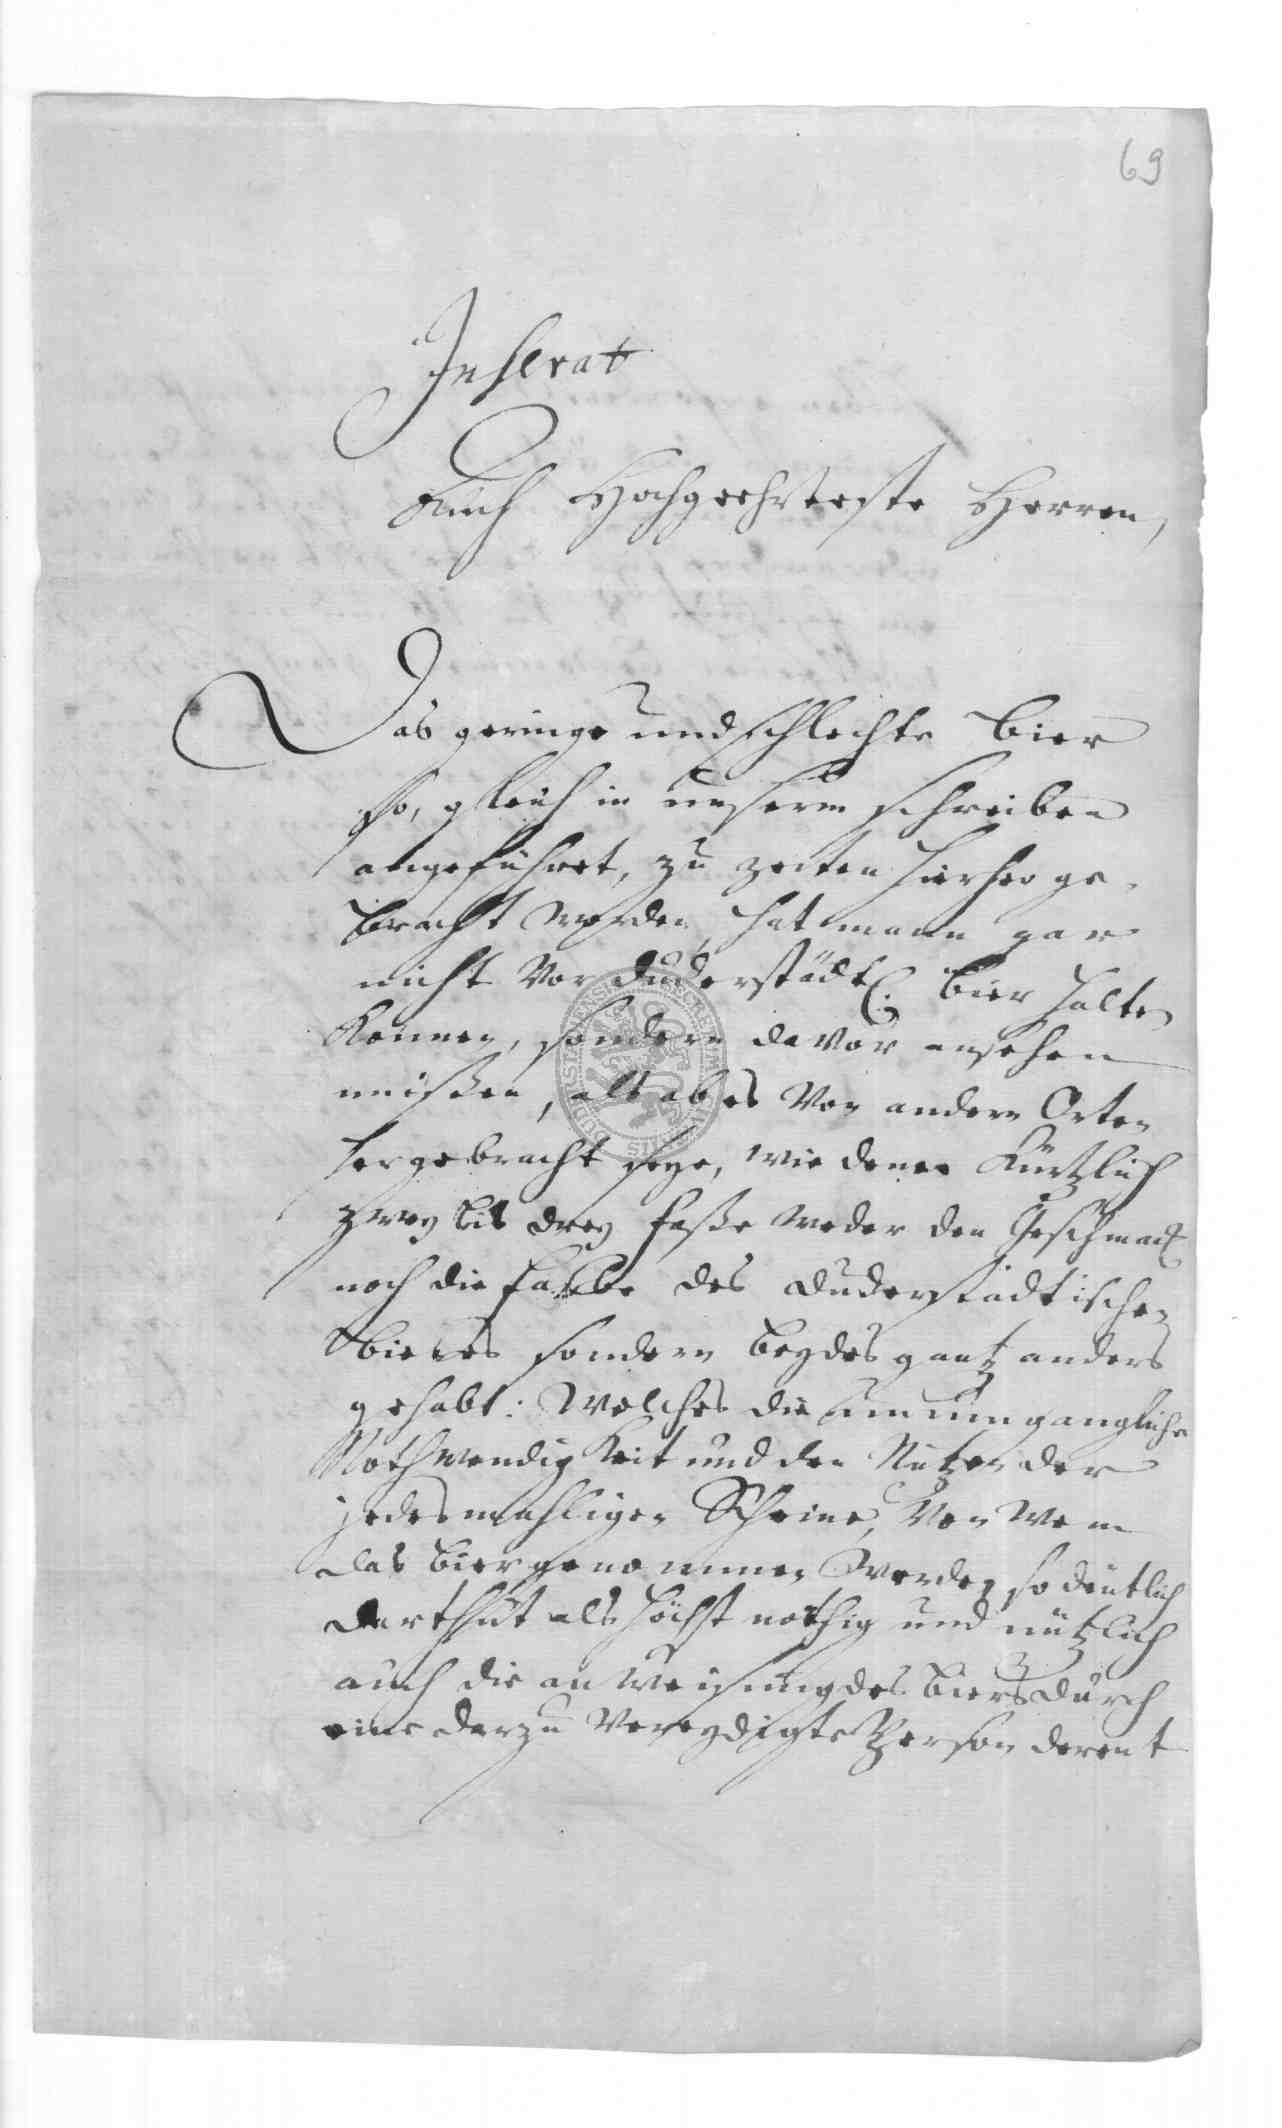 69
Inserat
Auch Hochgeehrteste Herren,
Das geringe und schlechte bier
so, gleich in unserm schreiben
angeführet, zu zeiten hierher ge-
bracht worden, hat mann gar
nicht vor duderstädt. bier halten
können, sondern davor ansehen
müßen, alß ob es von andern Orten
hergebracht seye, wie denn kürtzlich
zwey bis drey faße weder den Geschmack
noch die farbe des duderstädtischen
bieres sondern beydes gantz anders
gehabt: welches die unumgangliche
Nothwendigkeit und den Nutzen der
jedesmahligen Scheine, von wem
das bier genommen worden so deutlich
darthut als höchst nöthig und nützlich
auch die anweisung des biers durch
eine darzu vereydigte Person derent